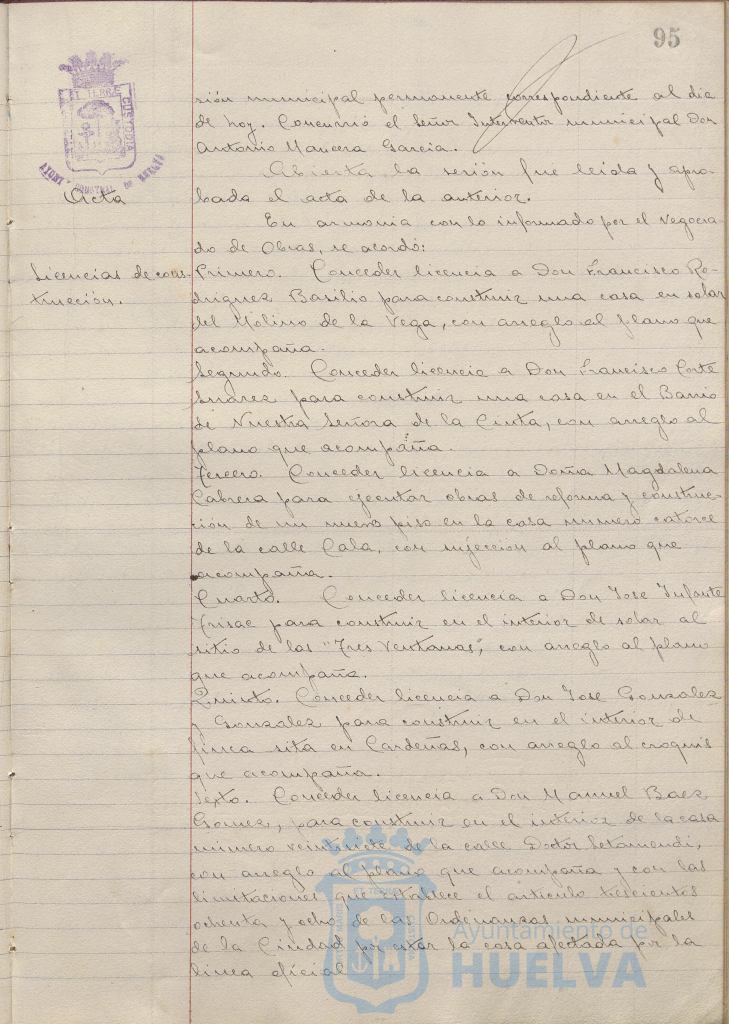 95
sión municipal permanente correspondiente al dia
de hoy. Concurrió el Señor Interventor municipal Don
Antonio Mancera Garcia.
Abierta la sesión fue leida y apro-
bada el acta de la anterior.
Acta
En armonia con lo informado por el Negocia-
do de Obras, se acordó:
Licencias de cons-
trucción.
Primero. Conceder licencia a Don Francisco Ro-
driguez Basilio para construir una casa en solar
del Molino de la Vega, con arreglo al plano que
acompaña.
Segundo. Conceder licencia a Don Francisco Corte
Suarez para construir una casa en el Barrio
de Nuestra Señora de la Cinta, con arreglo al
plano que acompaña.
Tercero. Conceder licencia a Doña Magdalena
Cabrera para ejecutar obras de reforma y construc-
ción de un nuevo piso en la casa numero catorce
de la calle Cala, con sujeccion al plano que
acompaña.
Cuarto. Conceder licencia a Don Jose Infante
para construir en el interior de solar al
sitio de las "Tres Ventanas", con arreglo al plano
que acompaña.
Quinto. Conceder licencia a Don Jose Gonzalez
y Gonzalez para construir en el interior de
finca sita en Cardeñas, con arreglo al croquis
que acompaña.
Sexto. Conceder licencia a Don Manuel Baez
Gomez, para construir en el interior de la casa
numero veintisiete de la calle Doctor Letamendi,
con arreglo al plano que acompaña y con las
limitaciones que establece el articulo trescientos
ochenta y ocho de las Ordenanzas municipales
de la Ciudad por estar la casa afectada por la
linea oficial
Ayuntamiento de
HUELVA